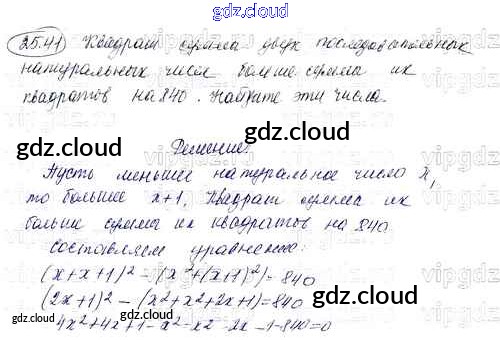 gdz.cloud
25.41 Квадрат суммы двух последовательных
натуральных чисел больше суммы их
квадратов на 840. Найдите эти числа.
gdz.cloud
Решение:
gdz.cloud
Пусть меньшее натуральное число x,
то большее x+1, Квадрат суммы их
больше суммы их квадратов на 840
составляем уравнение:
(x+x+1)² - (x²+(x+1)²)=840
(2x+1)² - (x²+x²+2x+1)=840
gdz.cloud
4x²+4x+1-x²-x²-2x-1-840=0